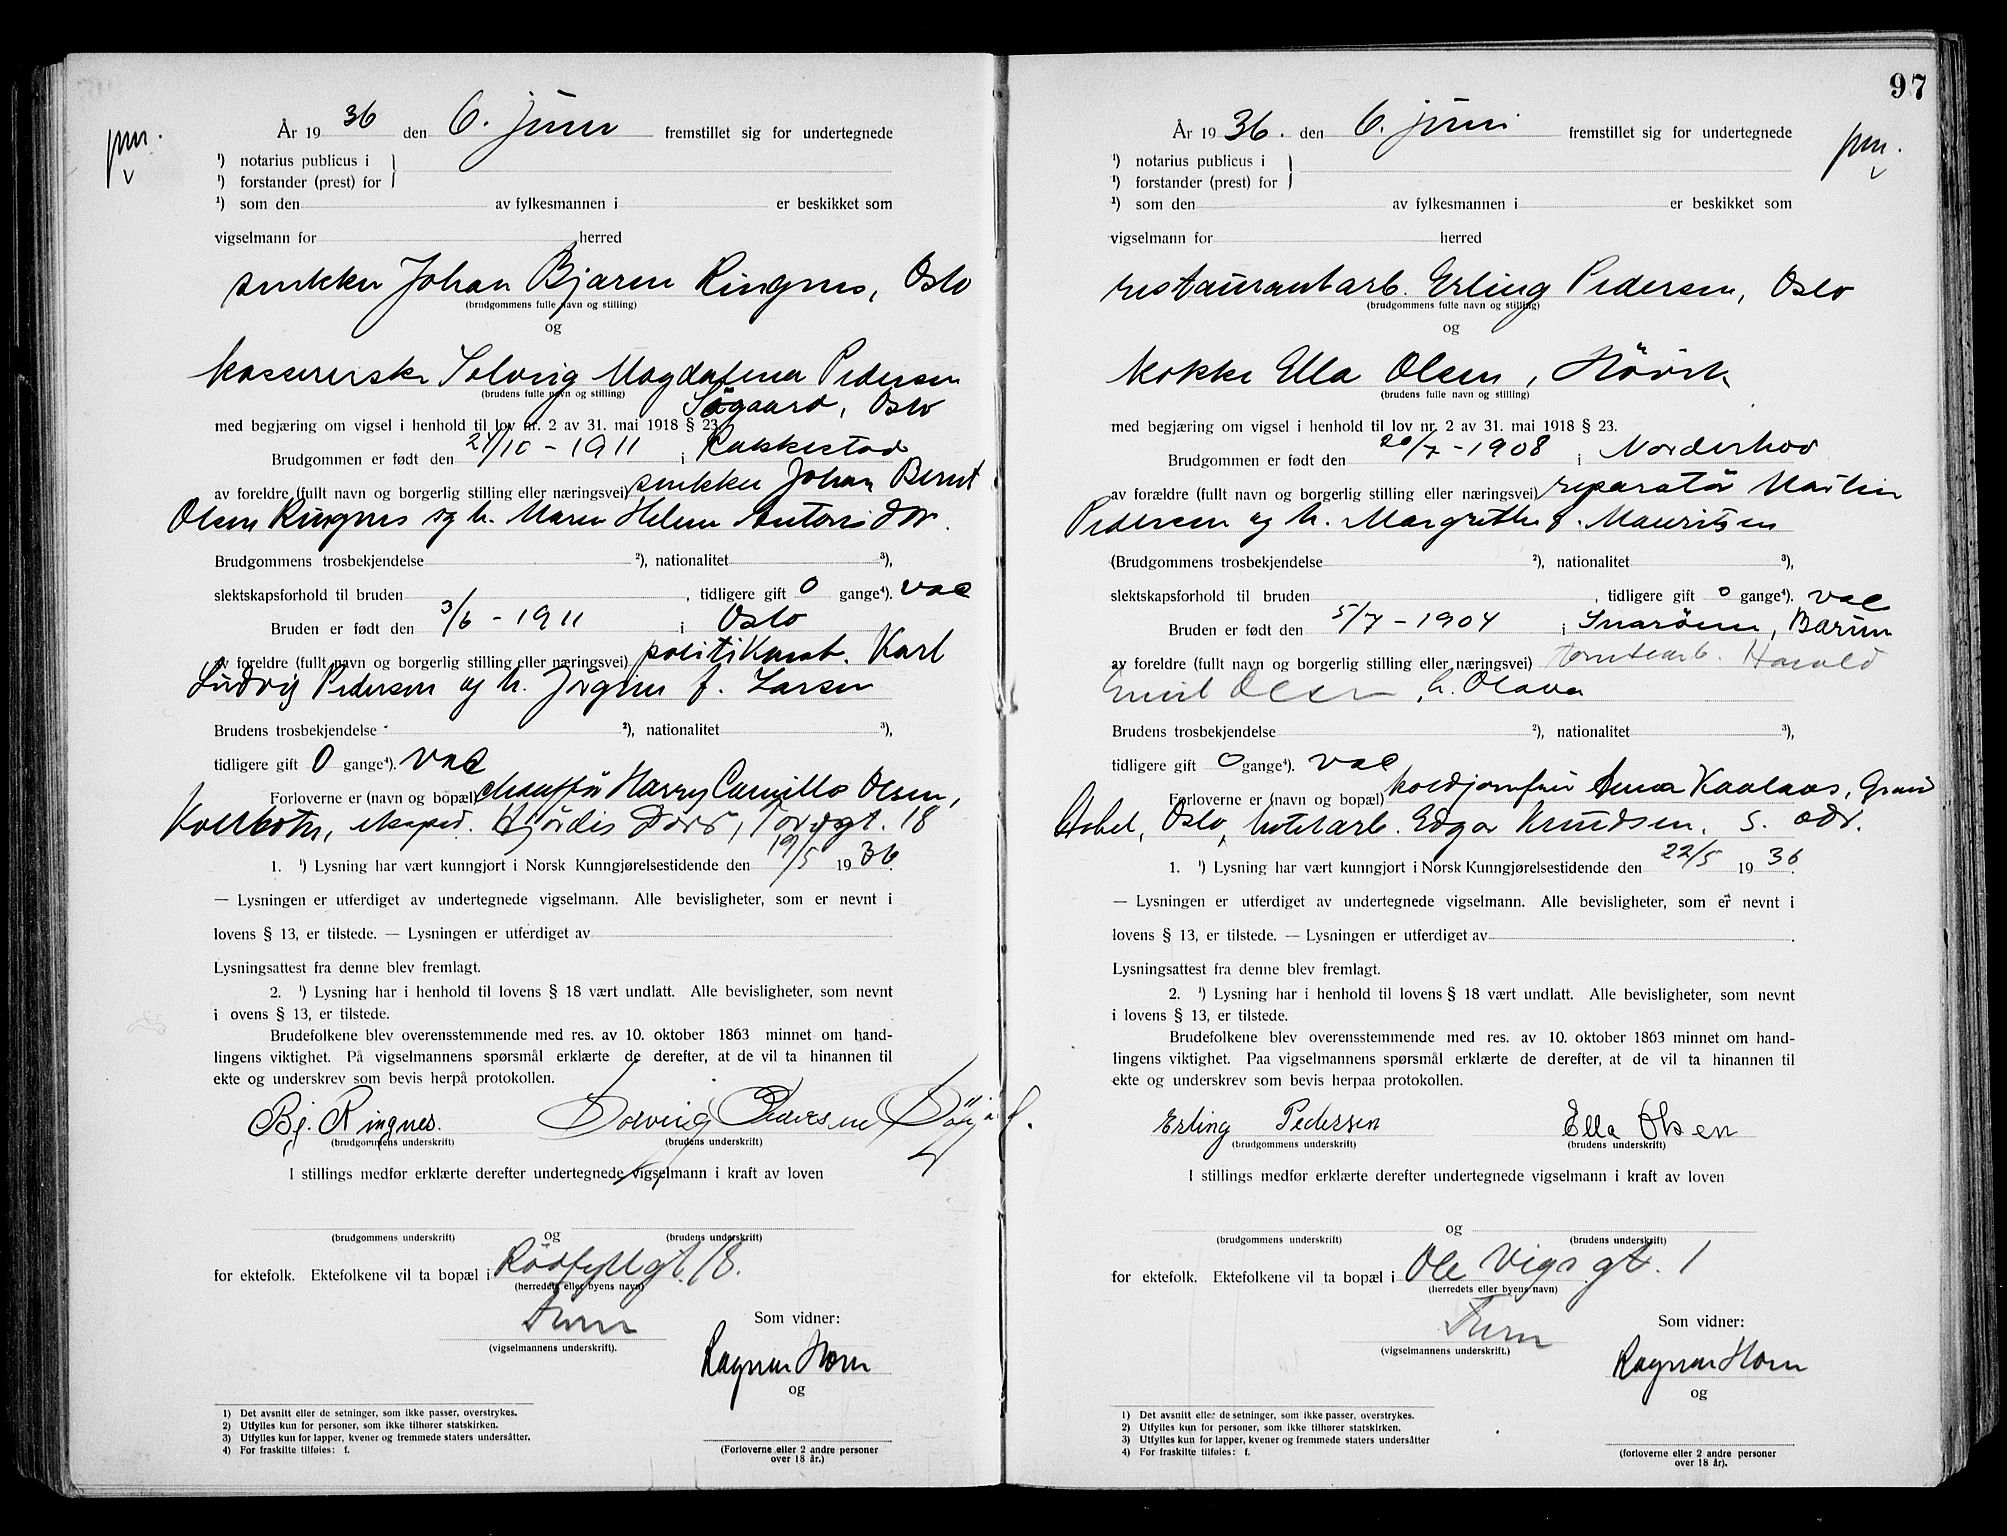 pm.
År 1936 den 6. juni fremstillet sig for undertegnede
¹) notarius publicus i
¹) forstander (prest) for
¹) som den av fylkesmannen i er beskikket som
vigselmann for herred
snekker Johan Bjarne Ringnes, Oslo
(brudgommens fulle navn og stilling)
og
kassererske Solveig Magdalena Pedersen
(brudens fulle navn og stilling)
Søgaard, Oslo
med begjæring om vigsel i henhold til lov nr. 2 av 31. mai 1918 § 23.
Brudgommen er født den 24/10 - 1911 i Rakkestad
av foreldre (fullt navn og borgerlig stilling eller næringsvei) snekker Johan Bernt
Olsen Ringnes og h. Maren Helene Antonisdor.
Brudgommens trosbekjendelse ²), nationalitet ³),
slektskapsforhold til bruden , tidligere gift 0 gange⁴). vac
Bruden er født den 3/6 - 1911 i Oslo
av foreldre (fullt navn og borgerlig stilling eller næringsvei) politikonst. Karl
Ludvig Pedersen og h. Jørgine f. Larsen
Brudens trosbekjendelse ²), nationalitet ³),
tidligere gift 0 gange⁴). vac
Forloverne er (navn og bopæl) chauffør Harry Camillo Olsen,
Kolbotn, eksped. Hjørdis Dørr, Torvgt. 18
1. ¹) Lysning har vært kunngjort i Norsk Kunngjørelsestidende den 19/5 1936.
— Lysningen er utferdiget av undertegnede vigselmann. Alle bevisligheter, som er nevnt i
lovens § 13, er tilstede. — Lysningen er utferdiget av
Lysningsattest fra denne blev fremlagt.
2. ¹) Lysning har i henhold til lovens § 18 vært undlatt. Alle bevisligheter, som nevnt
i ovens § 13, er tilstede.
Brudefolkene blev overensstemmende med res. av 10. oktober 1863 minnet om hand-
lingens viktighet. På vigselmannens spørsmål erklærte de derefter, at de vil ta hinannen til
ekte og underskrev som bevis herpå protokollen.
Bj. Ringnes. Solveig Pedersen Søgård.
(brudgommens underskrift) (brudens underskrift)
I stillings medfør erklærte derefter undertegnede vigselmann i kraft av loven
og
(brudgommens underskrift) (brudens underskrift)
for ektefolk. Ektefolkene vil ta bopæl i Rødfyllgt. 18.
(herredets eller byens navn)
Som vidner:
(vigselmannens underskrift).
Ragnar Horn
og
1) Det avsnitt eller de setninger, som ikke passer, overstrykes.
2) Utfylles kun for personer, som ikke tilhører statskirken.
3) Utfylles kun for lapper, kvener og fremmede staters undersåtter.
4) For fraskilte tilføies: f.
(Forloverne eller 2 andre personer
over 18 år.)
97
pm.
År 1936. den 6. juni fremstillet sig for undertegnede
¹) notarius publicus i
¹) forstander (prest) for
¹) som den av fylkesmannen i er beskikket som
vigselmann for herred
restaurantarb. Erling Pedersen, Oslo
(brudgommens fulle navn og stilling)
og
kokke Ella Olsen, Høvik
(brudens fulle navn og stilling)
med begjæring om vigsel i henhold til lov nr. 2 av 31. mai 1918 § 23.
Brudgommen er født den 20/7 - 1908 i Norderhov
av forældre (fullt navn og borgerlig stilling eller næringsvei) reparatør Martin
Pedersen og h. Margrethe f. Mauritsen
(Brudgommens trosbekjendelse ²), nationalitet ³),
slektskapsforhold til bruden , tidligere gift 0 gange⁴). vac
Bruden er født den 5/7 - 1904 i Snarøen, Bærum
av foreldre (fullt navn og borgerlig stilling eller næringsvei) tomtearb. Harald
Emil Olsen, h. Olava
Brudens trosbekjendelse ²), nationalitet ³),
tidligere gift 0 gange⁴). vac
Forloverne er (navn og bopæl) koldjomfru Anna Kaalaas, Grand
Hotel, Oslo, hotelarb. Edgar Knudsen, s. adr.
1. ¹) Lysning har vært kunngjort i Norsk Kunngjørelsestidende den 22/5 1936.
— Lysningen er utferdiget av undertegnede vigselmann. Alle bevisligheter, som er nevnt i
lovens § 13, er tilstede. — Lysningen er utferdiget av .
Lysningsattest fra denne blev fremlagt.
2. ¹) Lysning har i henhold til lovens § 18 vært undlatt. Alle bevisligheter, som nevnt
i lovens § 13, er tilstede.
Brudefolkene blev overensstemmende med res. av 10. oktober 1863 minnet om hand-
lingens viktighet. Paa vigselmannens spørsmål erklærte de derefter, at de vil ta hinannen til
ekte og underskrev som bevis herpaa protokollen.
Erling Pedersen Ella Olsen
(brudgommens underskrift) (brudens underskrift)
I stillings medfør erklærte derefter undertegnede vigselmann i kraft av loven
og
(brudgommens underskrift) (brudens underskrift)
for ektefolk. Ektefolkene vil ta bopæl i Ole Vigs gt. 1
(herredets eller byens navn)
Som vidner:
(vigselmannens underskrift.)
Ragnar Horn
og
1) Det avsnitt eller de setninger, som ikke passer, overstrykes.
2) Utfylles kun for personer, som ikke tilhører statskirken.
3) Utfylles kun for lapper, kvener og fremmede staters undersåtter
4) For fraskilte tilføies: f.
(forloverne eller 2 andre personer
over 18 år).